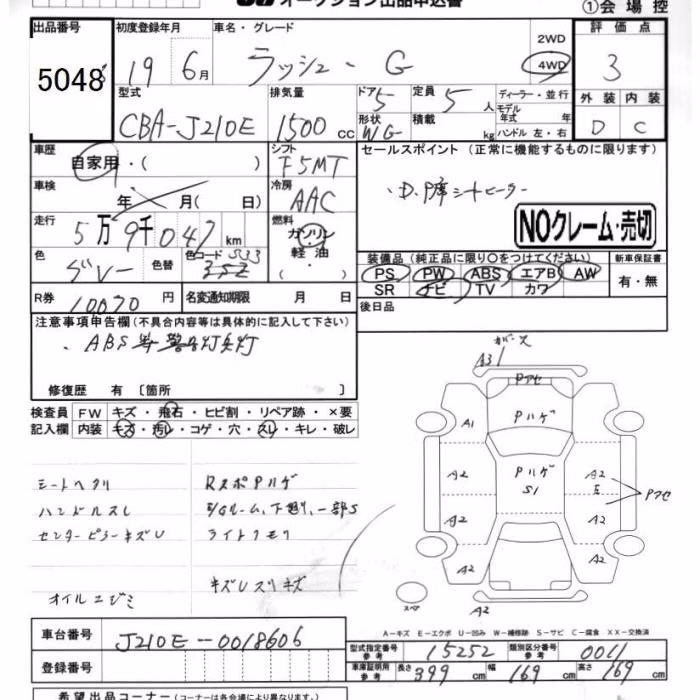 オークション出品申込書
①会場控
出品番号
5048
初度登録年月
19 6月
車名・グレード
ラッシュ - G
2WD
4WD
評価点
3
型式
CBA-J210E
排気量
1500 cc
ドア 5
形状 WG
定員 5 人
積載 kg
ディーラー・並行
モデル年式 年
ハンドル 左・右
外装 内装
D C
車歴
自家用・( )
シフト
F5MT
セールスポイント (正常に機能するものに限ります)
・D.P席シートヒーター
車検
年 月( 日)
冷房
AAC
NOクレーム・売切
走行
5万9千047 km
燃料
ガソリン
軽油
・( )
色
グレー
色替
色コード S33
装備品 (純正品に限り○をつけてください)
PS PW ABS エアB AW
SR ナビ TV カワ
新車保証書
有・無
R券
10070 円
名変通知期限 月 日
後日品
注意事項申告欄 (不具合内容等は具体的に記入して下さい)
、ABS 警告灯点灯
修復歴 有 [箇所 ]
検査員 FW キズ・飛石・ヒビ割・リペア跡・×要
記入欄 内装 キズ・汚レ・コゲ・穴・スレ・キレ・破レ
シートヘタリ
ハンドルスレ
センターピラーキズU
オイルニジミ
RスポPハゲ
E/Gルーム、下廻り、一部S
ライトクモリ
キズUスリキズ
カバーズ
A3
Pアセ
A1
Pハゲ
A2
A2
A2
Pハゲ
S1
A2
E
A2
A2
Pアセ
スペア
A2
A-キズ E-エクボ U-凹み W-補修跡 S-サビ C-腐食 XX-交換済
車台番号
J210E-0018606
登録番号
型式指定番号 参考
15252
類別区分番号 参考
0011
車庫証明用 参考
長さ 399 cm
幅 169 cm
高さ 169 cm
希望出品コーナー (コーナーは各会場により異なります。)